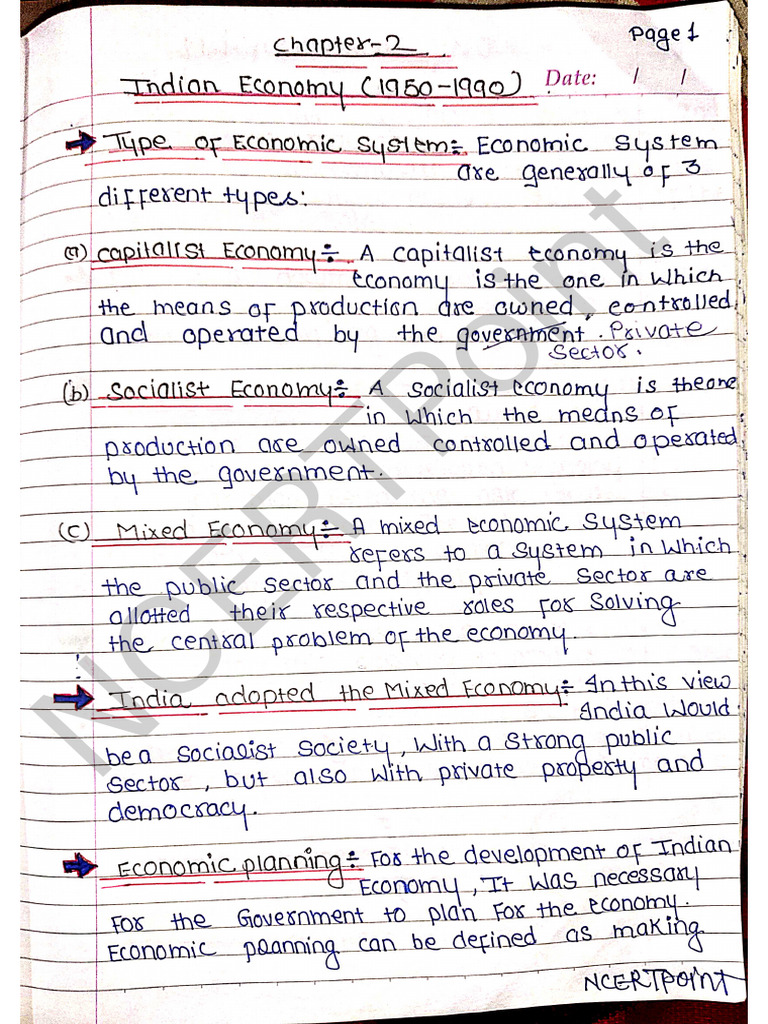 Page 1
Chapter-2
Indian Economy (1950-1990) Date: / /
→ Type of Economic System÷ Economic System
are generally of 3
different types:
(a) Capitalist Economy÷ A capitalist economy is the
economy is the one in which
the means of production are owned, controlled
and operated by the government. Private
Sector.
(b) Socialist Economy÷ A socialist economy is the one
in which the means of
production are owned controlled and operated
by the government.
(c) Mixed Economy÷ A mixed economic system
refers to a system in which
the public sector and the private sector are
allotted their respective roles for solving
the central problem of the economy.
→ India adopted the Mixed Economy÷ In this view
India would
be a socialist society, with a strong public
sector, but also with private property and
democracy.
→ Economic planning÷ For the development of Indian
Economy, It was necessary
for the Government to plan for the economy.
Economic planning can be defined as making
NCERTPOINT
NCERTPoint